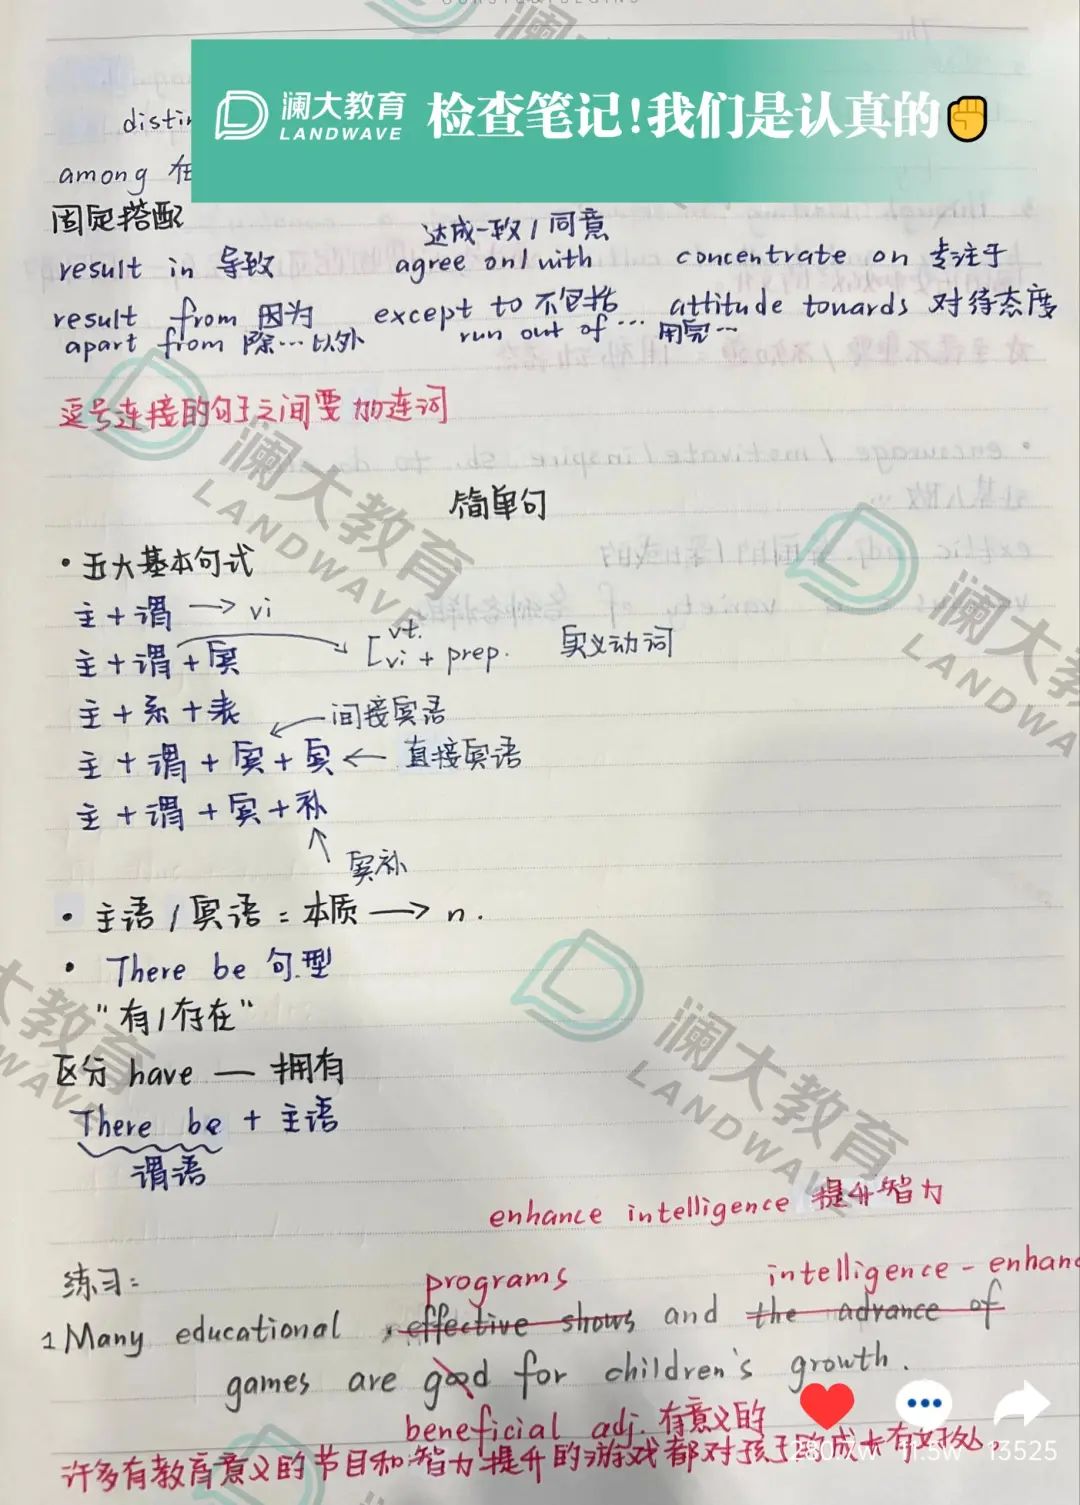 澜大教育 LANDWAVE 检查笔记!我们是认真的✊
among 在
固定搭配
达成一致/同意
result in 导致 agree on/with concentrate on 专注于
result from 因为 except to 不包括 attitude towards 对待态度
apart from 除…以外 run out of… 用完…
逗号连接的句子之间要加连词
简单句
• 五大基本句式
主+谓 → vi
主+谓+宾 [vt. vi + prep. 实义动词
主+系+表
间接宾语
主+谓+宾+宾 ← 直接宾语
主+谓+宾+补
宾补
• 主语/宾语=本质 → n.
• There be 句型
"有/存在"
区分 have — 拥有
There be + 主语
谓语
enhance intelligence 提升智力
练习:
programs intelligence-enhanc
1 Many educational effective shows and the advance of
games are good for children's growth.
beneficial adj. 有意义的
许多有教育意义的节目和智力提升的游戏都对孩子的成长有好处。
11.5w 13525
澜大教育
LANDWAVE
澜大教育
LANDWAVE
澜大教育
LANDWAVE